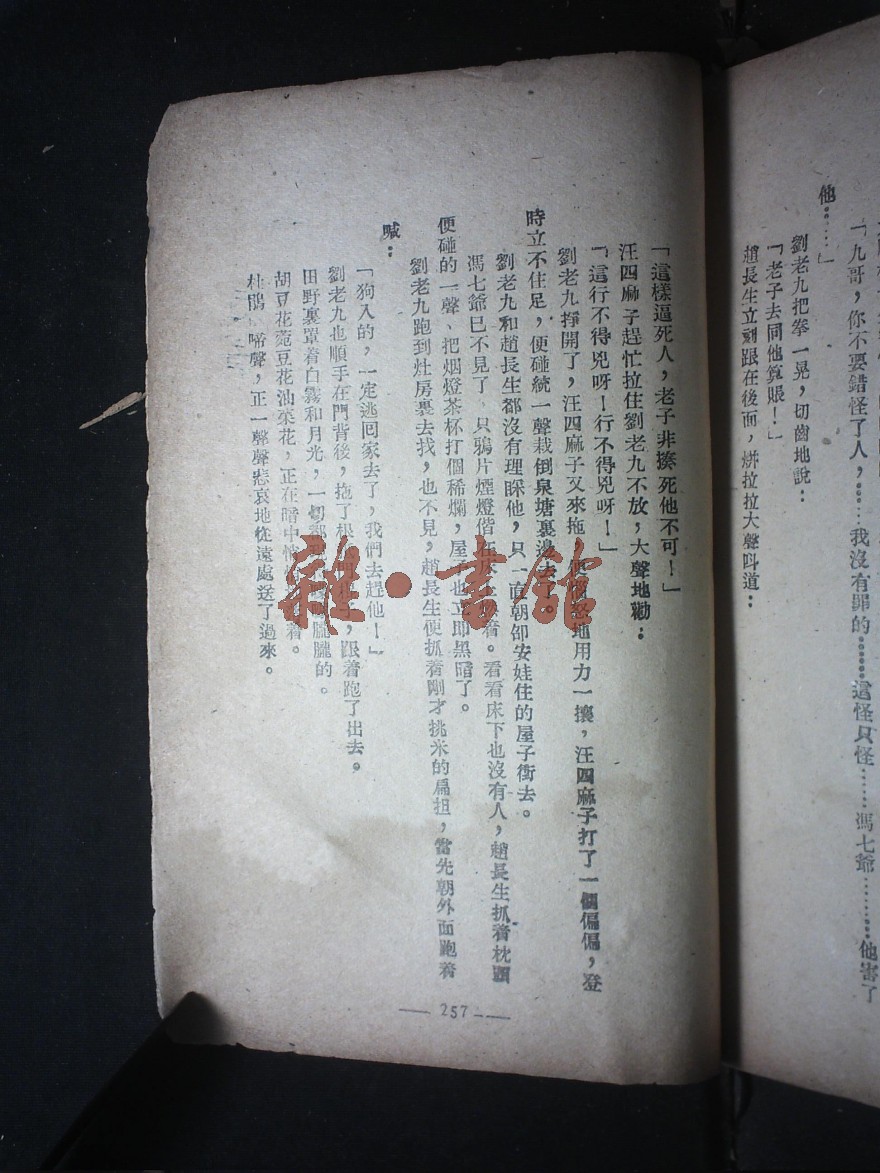 「九哥，你不要錯怪了人，……我沒有罪的……這怪只怪……馮七爺………他害了
他……」
劉老九把拳一晃，切齒地說：
「老子去同他算賬！」
趙長生立刻跟在後面，烘拉拉大聲叫道：
「這樣逼死人，老子非揍死他不可！」
汪四麻子趕忙拉住劉老九不放，大聲地勸：
「這行不得兇呀！行不得兇呀！」
劉老九掙開了，汪四麻子又來拖，地用力一攘，汪四麻子打了一個偏偏，登
時立不住足，便碰統一聲栽倒泉塘裏邊去了。
劉老九和趙長生都沒有理睬他，只一面朝卻安娃住的屋子衝去。
馮七爺已不見了，只鴉片煙燈偕着。看看床下也沒有人，趙長生抓着枕頭
便碰的一聲、把烟燈茶杯打個稀爛，屋子也立即黑暗了。
劉老九跑到灶房裏去找，也不見，趙長生便抓着剛才挑米的扁担，當先朝外面跑着
喊：
「狗入的，一定逃回家去了，我們去趕他！」
劉老九也順手在門背後，拖了根，跟着跑了出去。
田野裏罩着白霧和月光，一切都朧朧的。
胡豆花菀豆花油菜花，正在暗中着。
杜鵑啼聲，正一聲聲悲哀地從遠處送了過來。
— 257 —
雜·書館